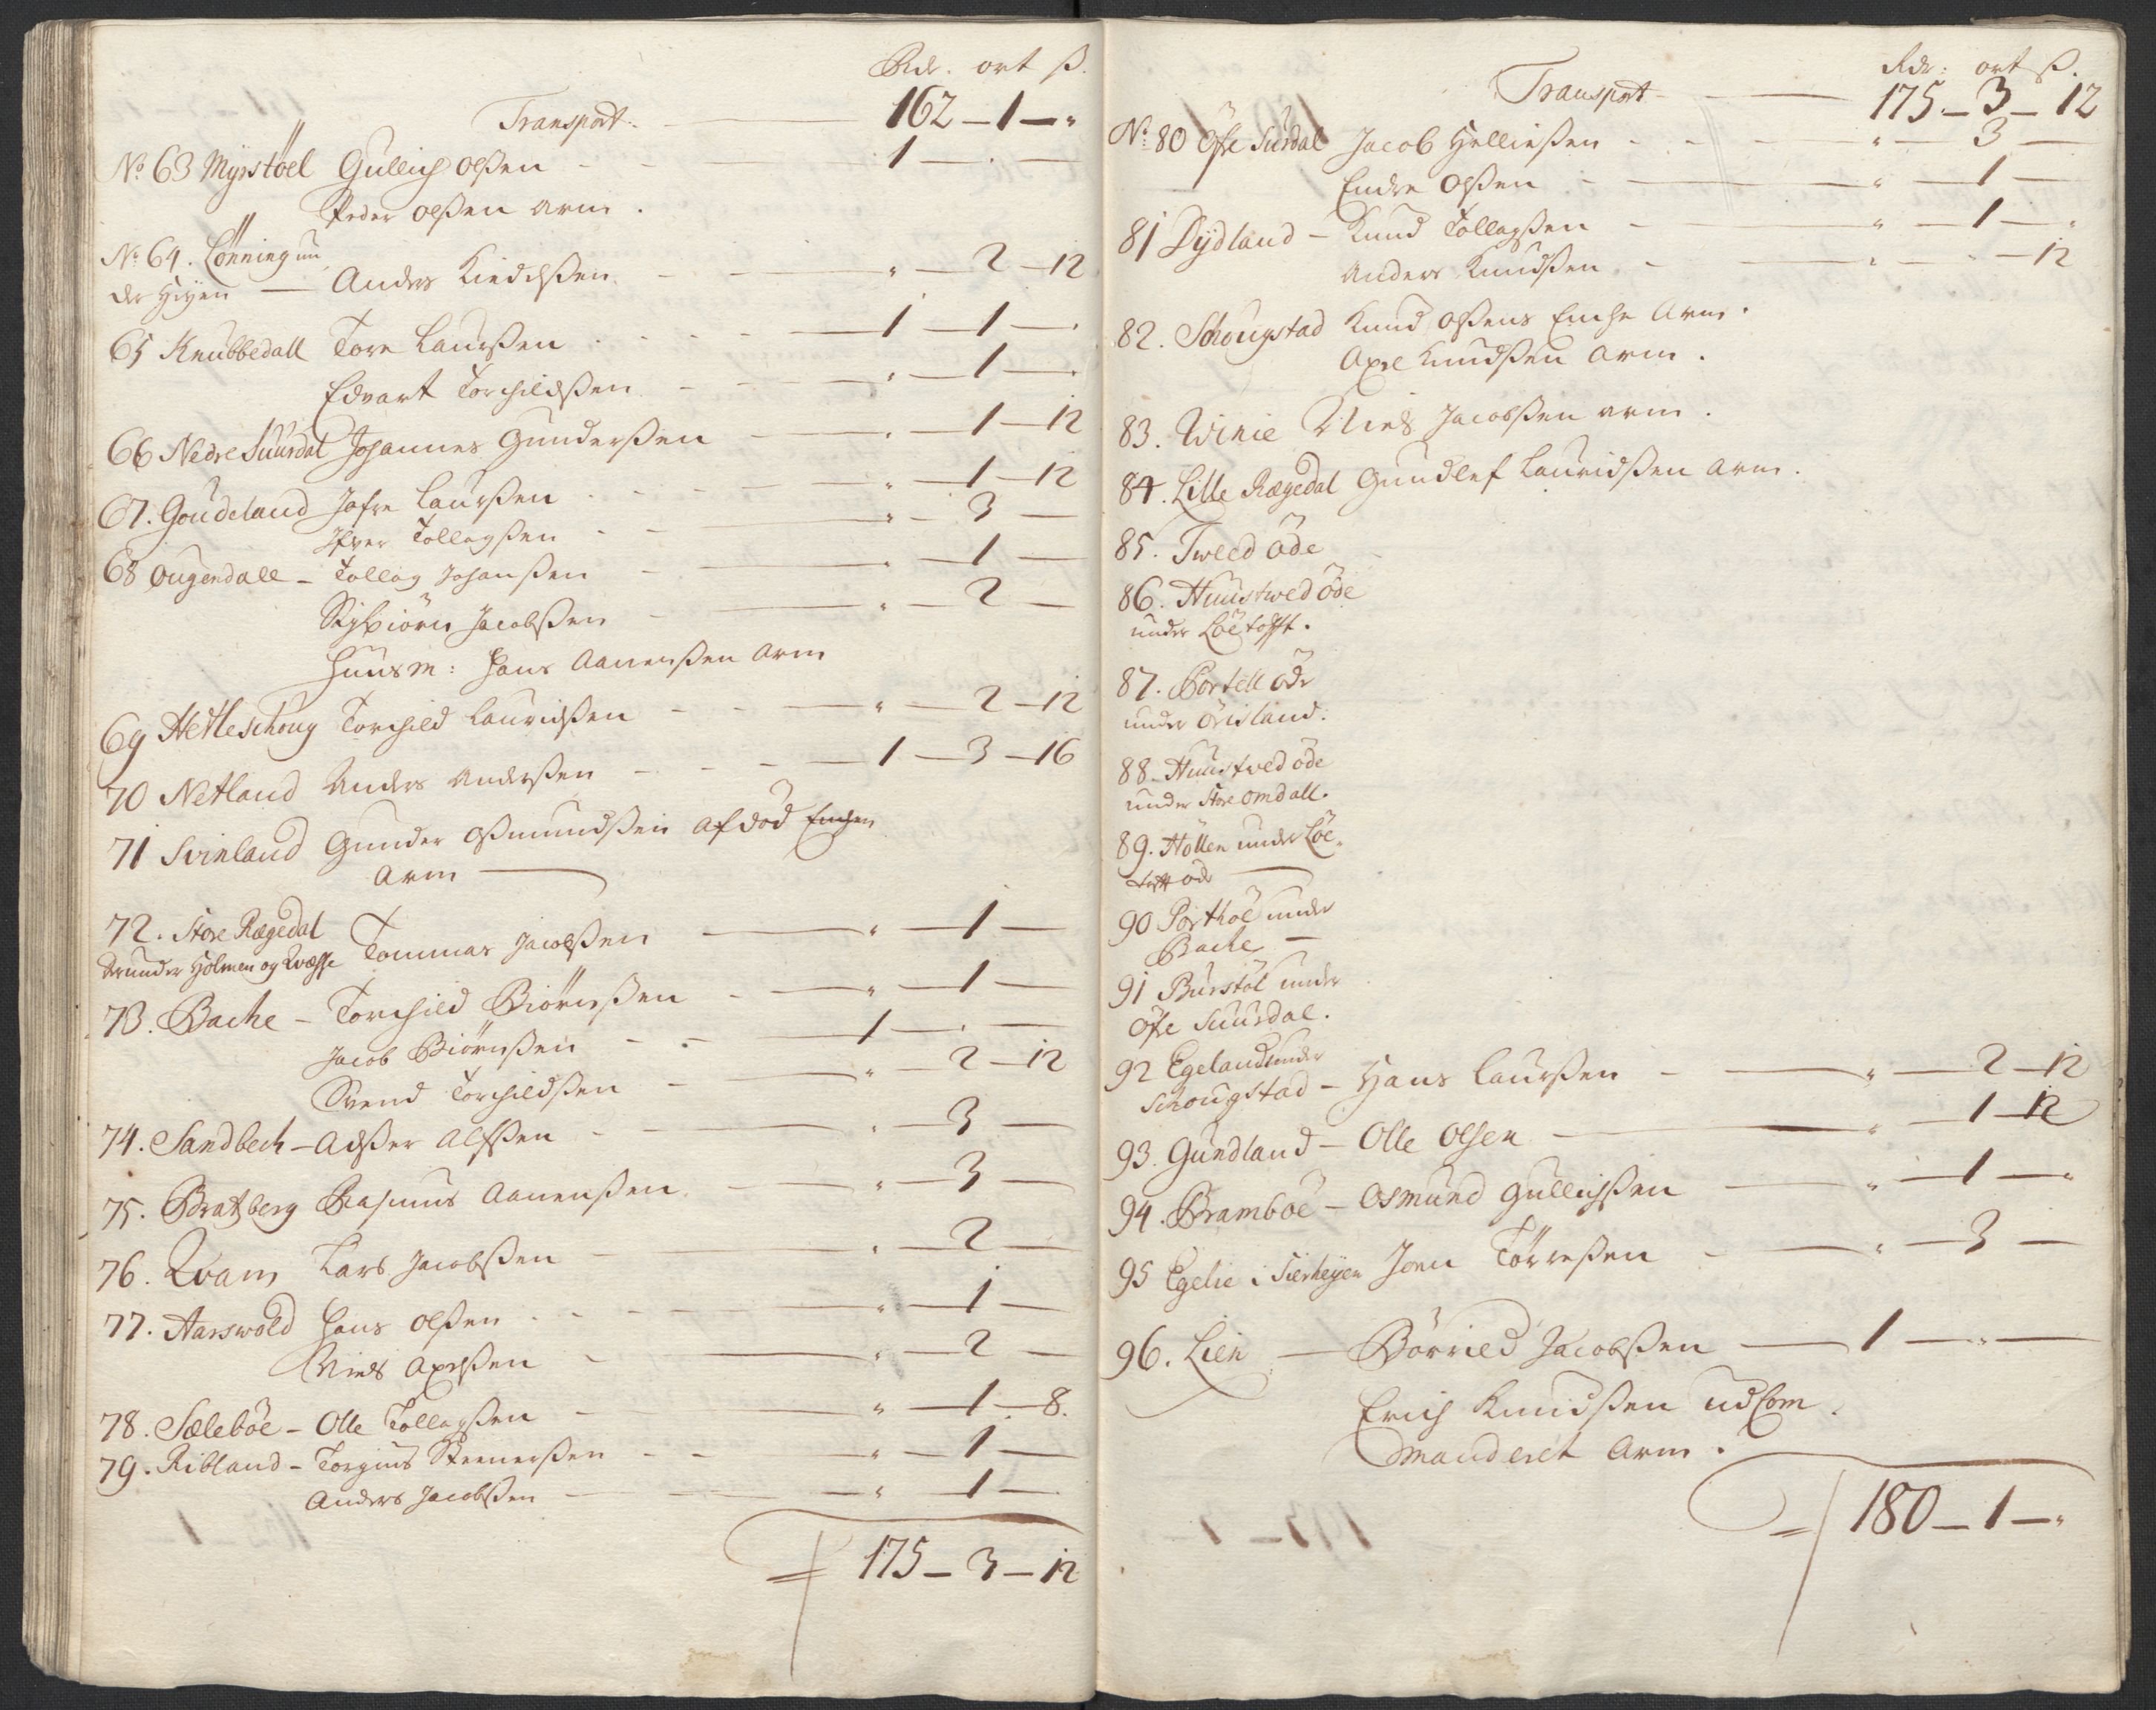 Rdr. ort ß.
Transport 162 - 1 - "
No 63 Myrstöel Gullich Olßen - 1 - . -
Peder Olßen arm.
No 64. Lönning un
der Heyen - Anders Kiedelßen " - 2 - 12
65 Knubbedall Tore Laurßen 1 - 1 -
Edvart Torchildßen " - 1 -
66 Nedre Suurdal Johannes Gunderßen " - 1 - 12
67. Goudeland Jafre Laurßen " - 1 - 12
Ifver Tollagßen " - 3 -
68 Ougendall - Tollag Johanßen " - 1 -
Sigbiörn Jacobßen " - 2 -
Huusm: Hans Aanenßen arm
69 Hetleschoug Torchild Lauridßen " - 2 - 12
70 Netland Anders Anderßen 1 - 3 - 16
71 Svinland Gunder Oßmundßen afdöd Enchen
arm
72. Store Rægedal
derunder Holmen og Kvæffe Tommas Jacobßen " - 1 -
73. Bache - Torchild Biörnßen " - 1 -
Jacob Biörnßen 1 - . -
Svend Torchildßen " - 2 - 12
74. Sandbech - Adßer Alfßen " - 3 -
75. Bratzberg Rasmus Aanenßen " - 3 -
76. Qvam Lars Jacobßen " - 2 -
77. Aarswold Hans Olßen " - 1 -
Niels Axelßen " - 2 -
78. Sæleböe - Olle Tollagßen " - 1 - 8.
79. Ribland - Torgius Steenerßen " - 1 -
Anders Jacobßen " - 1 -
= 175 - 3 - 12
Rdr: ort ß.
Transport 175 - 3 - 12
No 80 Öfre Surdal Jacob Helließen " - 3 -
Endre Olßen " - 1 -
81 Dydland - Knud Tollagßen " - 1 - "
Anders Knudßen " - " - 12
82. Schougstad Knud Olßens Enche Arm.
Axel Knudßen arm.
83. Winie Niels Jacobßen arm.
84. Lille Rægedal Gundlef Lauridßen arm.
85. Tweed öde
86. Huustwed öde
under Löetofft.
87. Portell öde
under Örisland.
88. Huustved öde
under Store omdall.
89. Höllen under Löe-
tofft öde
90 Porthöe under
Bache -
91 Burstöl under
Öfre Suurdal.
92 Egeland under
Schougstad - Hans Laurßen " - 2 - 12
93. Gundland - Olle Olsen " - 1 - 12
94. Bramböe - Osmund Gullichßen " - 1 - "
95 Egelie i Sierheyen Jonn Törreßen " - 3 -
96. Lien - Börried Jacobßen 1 - " -
Erich Knudßen udCom
manderet arm.
= 180 - 1 - "